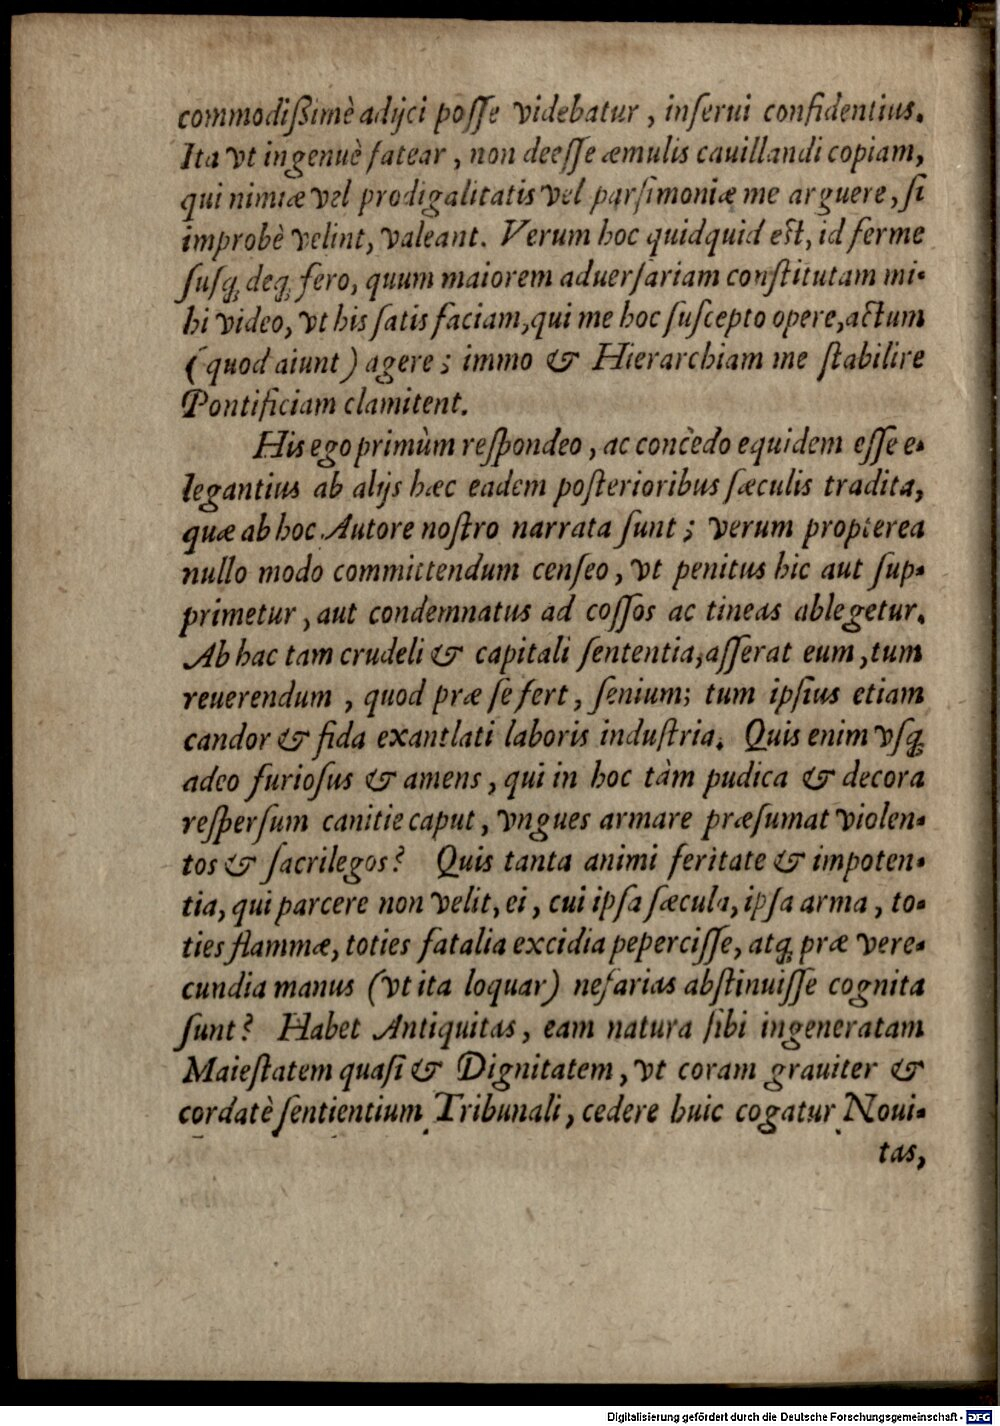 commodißimè adijci poſſe videbatur, inſerui confidentius.
Ita vt ingenuè fatear, non deeſſe æmulis cauillandi copiam,
qui nimiæ vel prodigalitatis vel parſimoniæ me arguere, ſi
improbè velint, valeant. Verum hoc quidquid eſt, id ferme
ſuſq; deq; fero, quum maiorem aduerſariam conſtitutam mi-
hi video, vt his ſatis faciam, qui me hoc ſuſcepto opere, actum
(quod aiunt) agere; immo & Hierarchiam me ſtabilire
Pontificiam clamitent.
His ego primùm reſpondeo, ac concedo equidem eſſe e-
legantius ab alijs hæc eadem poſterioribus ſæculis tradita,
quæ ab hoc Autore noſtro narrata ſunt; verum propterea
nullo modo committendum cenſeo, vt penitus hic aut ſup-
primetur, aut condemnatus ad coſſos ac tineas ablegetur.
Ab hac tam crudeli & capitali ſententia, aſſerat eum, tum
reuerendum, quod præ ſe fert, ſenium; tum ipſius etiam
candor & fida exantlati laboris induſtria. Quis enim vſq;
adeo furioſus & amens, qui in hoc tàm pudica & decora
reſperſum canitie caput, vngues armare præſumat violen-
tos & ſacrilegos? Quis tanta animi feritate & impoten-
tia, qui parcere non velit, ei, cui ipſa ſæcula, ipſa arma, to-
ties flammæ, toties fatalia excidia peperciſſe, atq; præ vere-
cundia manus (vt ita loquar) nefarias abſtinuiſſe cognita
ſunt? Habet Antiquitas, eam natura ſibi ingeneratam
Maieſtatem quaſi & Dignitatem, vt coram grauiter &
cordatè ſentientium Tribunali, cedere huic cogatur Noui-
tas,
Digitalisierung gefördert durch die Deutsche Forschungsgemeinschaft - DFG